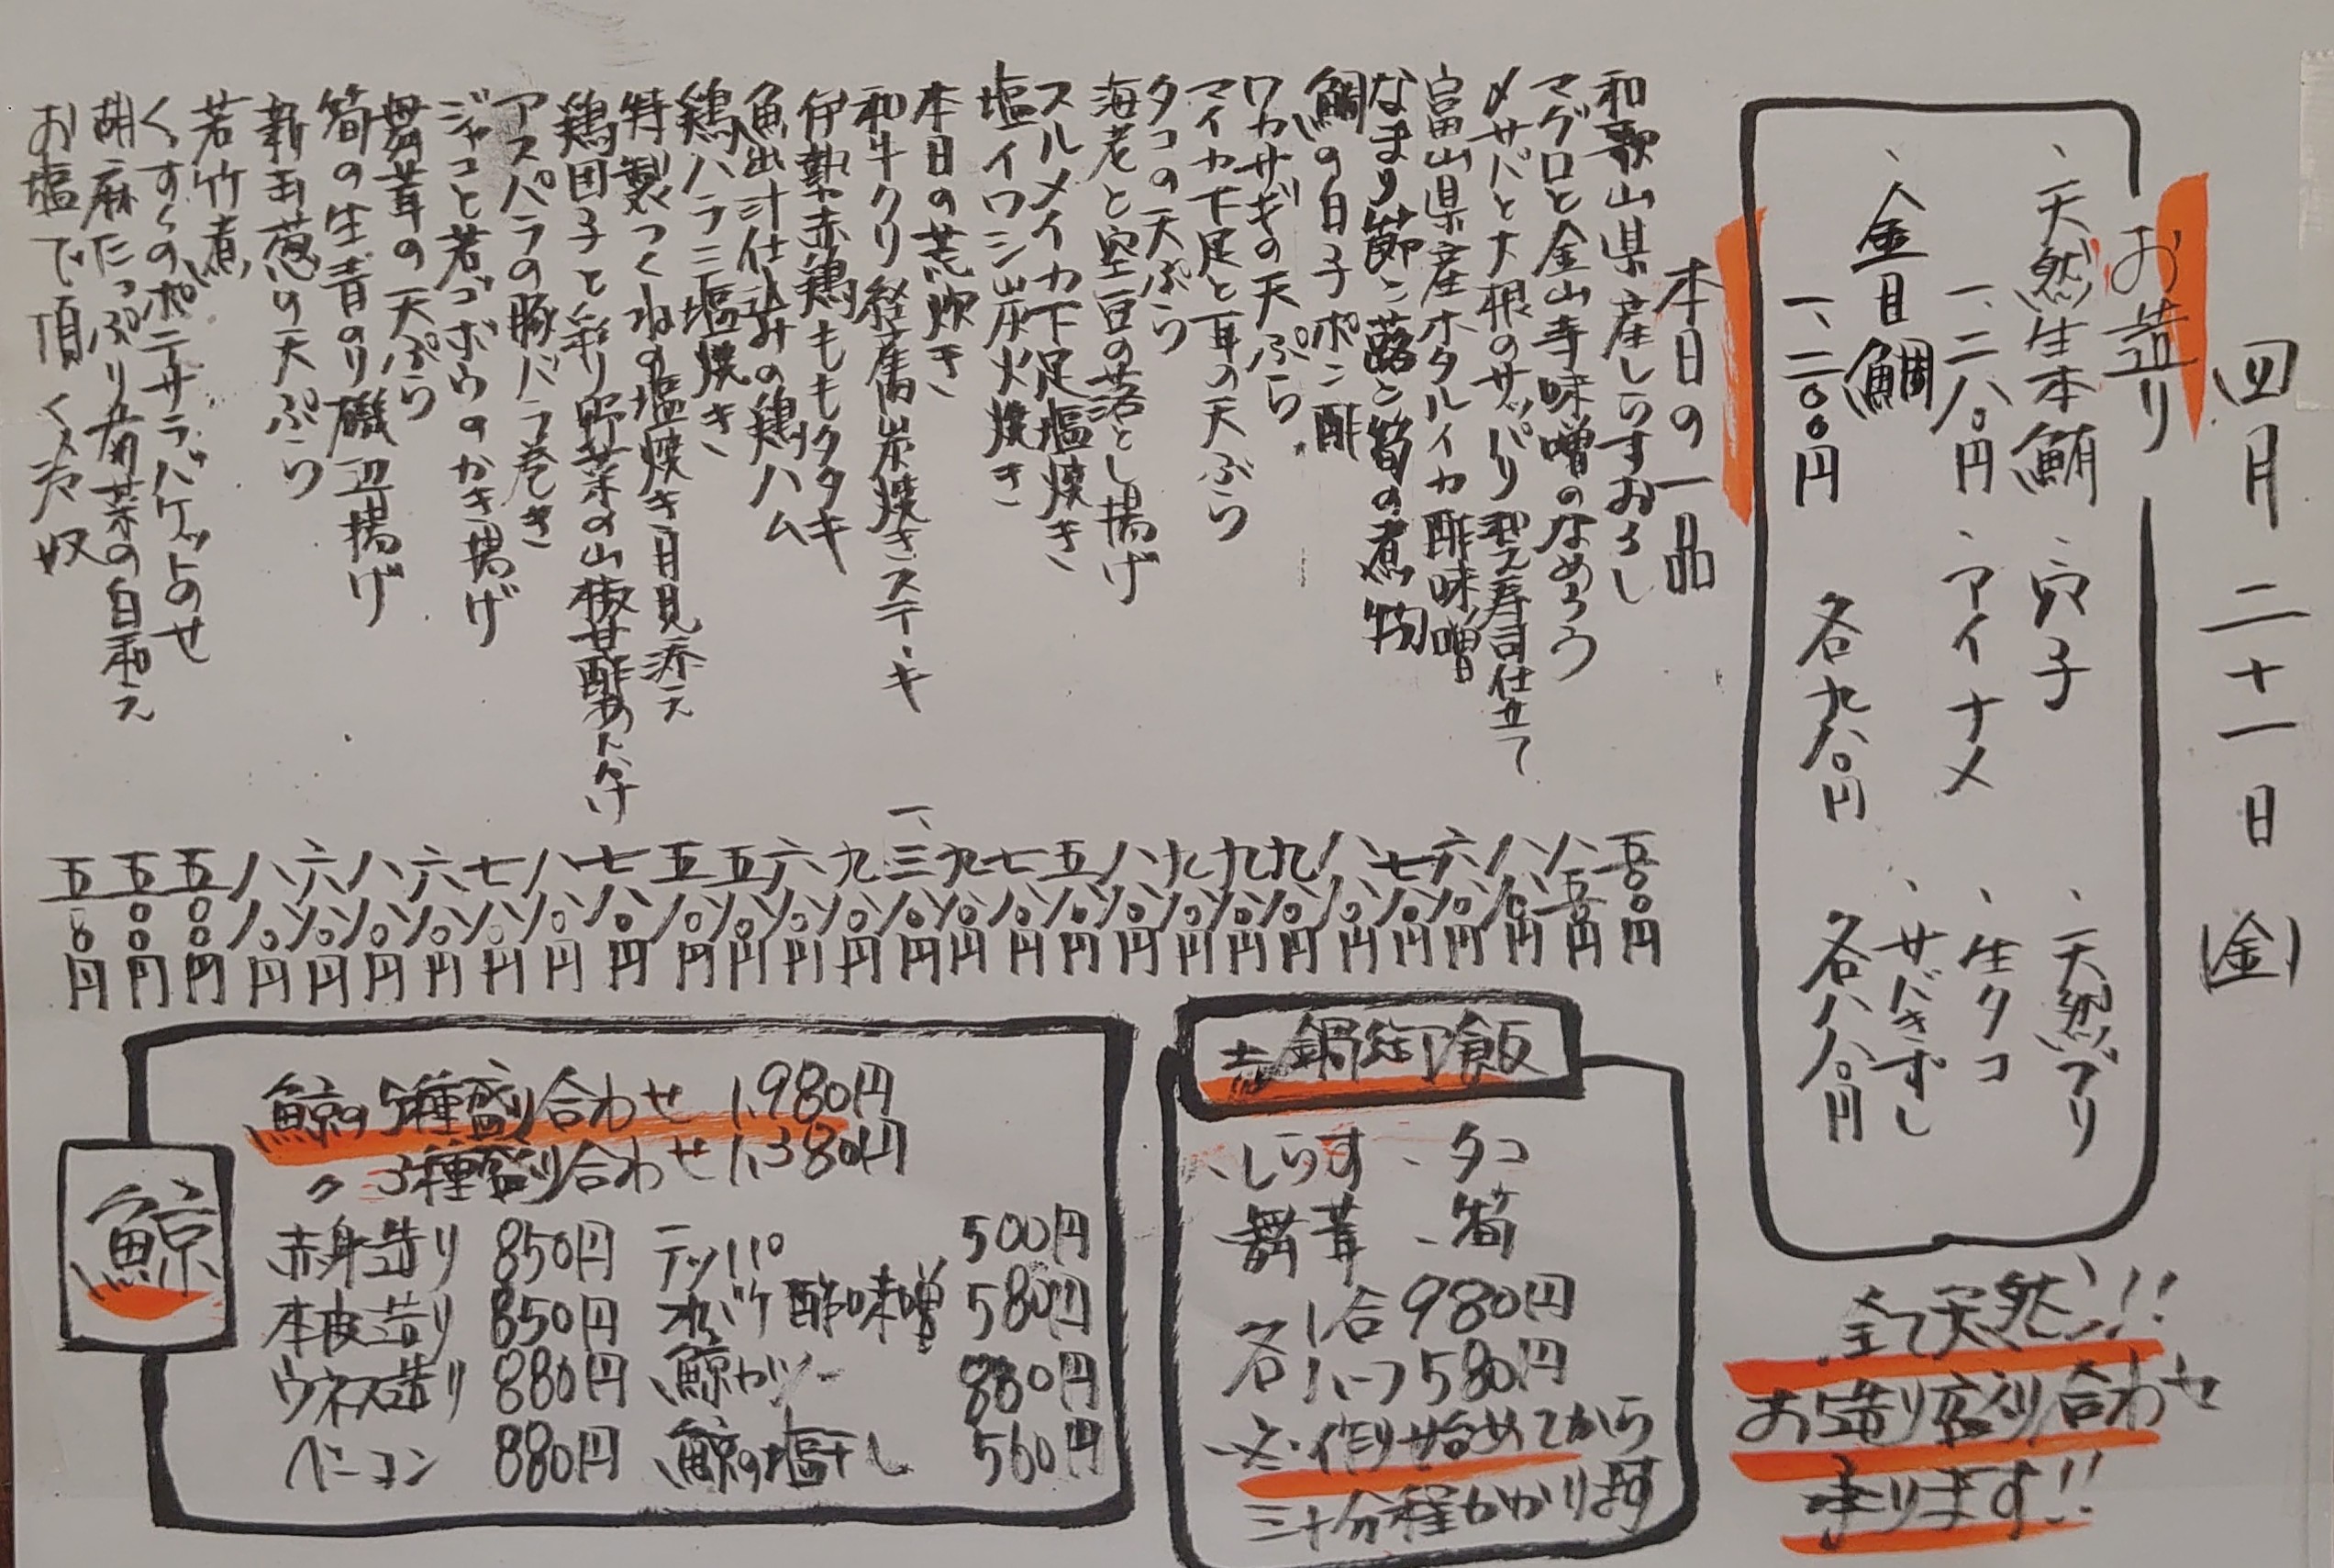 四月二十一日(金)
お造り
、天然生本鮪
一、二八〇円
、金目鯛
一、二〇〇円
、穴子
、アイナメ
各九八〇円
、天然ブリ
、生タコ
、サバきずし
各八八〇円
全て天然!!
お造り盛り合わせ
承ります!!
本日の一品
和歌山県産しらすおろし 五〇〇円
マグロと金山寺味噌のなめろう 八五〇円
〆サバと大根のサッパリ和え寿司仕立て 八八〇円
富山県産ホタルイカ酢味噌 六八〇円
なまり節と蕗と筍の煮物 七八〇円
鯛の白子ポン酢 八八〇円
ワカサギの天ぷら 九八〇円
マイカ下足と耳の天ぷら 九八〇円
タコの天ぷら 九八〇円
海老と空豆の落とし揚げ 八八〇円
スルメイカ下足塩焼き 五八〇円
塩イワシ炭火焼き 七八〇円
本日の荒炊き 九八〇円
和牛クリ 経産牛炭焼きステーキ 一、三八〇円
伊勢赤鶏ももタタキ 九八〇円
魚出汁仕込みの鶏ハム 六八〇円
鶏ハラミ塩焼き 五八〇円
特製つくねの塩焼き月見添え 五八〇円
鶏団子と彩り野菜の山椒甘酢あんかけ 七八〇円
アスパラの豚バラ巻き 八八〇円
ジャコと若ゴボウのかき揚げ 七八〇円
舞茸の天ぷら 六八〇円
筍の生青のり磯辺揚げ 八八〇円
新玉葱の天ぷら 六八〇円
若竹煮 八八〇円
くずくずのポテサラバケットのせ 五〇〇円
胡麻たっぷり青菜の白和え 五〇〇円
お塩で頂く冷奴 五〇〇円
土鍋御飯
、しらす 、タコ
、舞茸 、筍
各1合 980円
各ハーフ 580円
※作り始めてから
三十分程かかります
鯨
鯨の5種盛り合わせ 1,980円
〃 3種盛り合わせ 1,380円
赤身造り 850円
本皮造り 850円
ウネス造り 880円
ベーコン 880円
テッパ 500円
オバケ酢味噌 580円
鯨カツ 880円
鯨の塩干し 560円